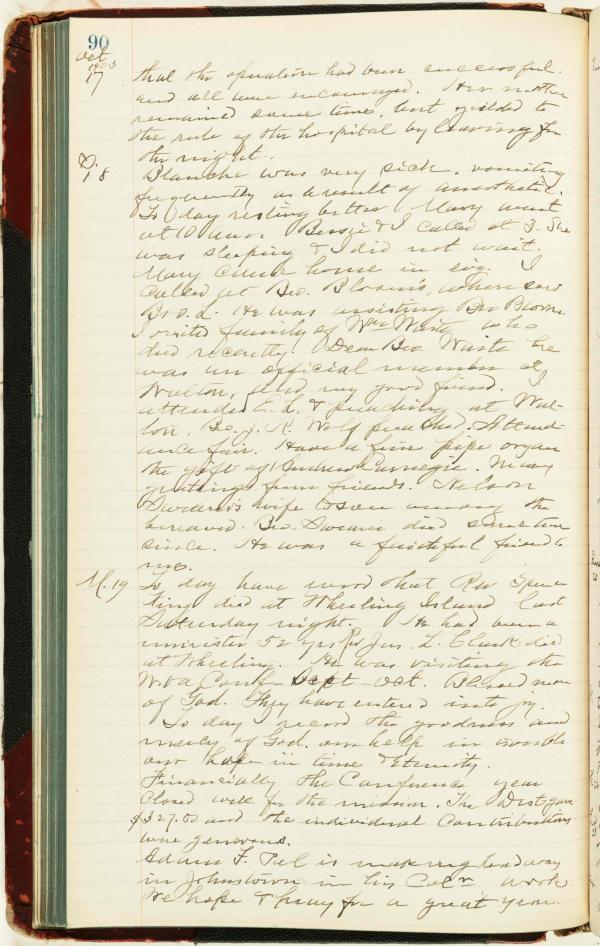 90
Oct
1903
17 that the operation had been successful.
and all were encouraged. Her mother
remained some time, but yielded to
the rule of the hospital by leaving for
the night.
S. 18 Blanche was very sick, vomiting
frequently as a result of anesthetic.
To day resting better Mary went
at 10 a.m. Bessie & I called at 3. She
was sleeping & I did not wait.
Mary came home in eve. I
called at Bro. Bloom's, where saw
Bro. L. He was assisting Bro Bloom.
I visited family of Wm Waite who
died recently. Dear Bro. Waite he
was an official member at
Walton, and my good friend.
attended E. L. & preaching at Wal-
ton. Bro. J. K. Wolf preached. Attend-
ance fair. Have a fine pipe organ
the gift of Andrew Carnegie. Many
greetings from friends. Nelson
wife & son among the
bereaved. Bro. died sometime
since. He was a faithful friend to
me.
M. 19 To day have word that Rev Spencer
King died at Wheeling Island last
Saturday night. He had been a
minister 52 yrs Rev Jas. L. Clark died
at Wheeling. He was visiting the
W. Va Conf - Sept - Oct. Blessed men
of God. They have entered into joy.
To day I record the goodness and
mercy of God. our help in trouble
our hope in time & Eternity.
Financially the Conference year
closed well for the mission. The Dist gave
$327.00 and the individual Contributions
were generous.
Adam F. is making headway
in Johnstown in his Col'n work.
We hope & pray for a great year.